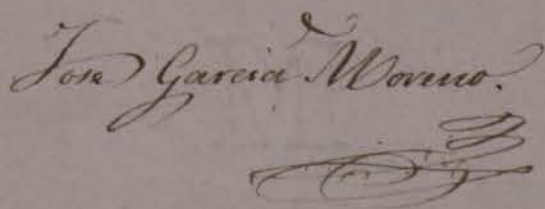 Jose Garcia Moreno.